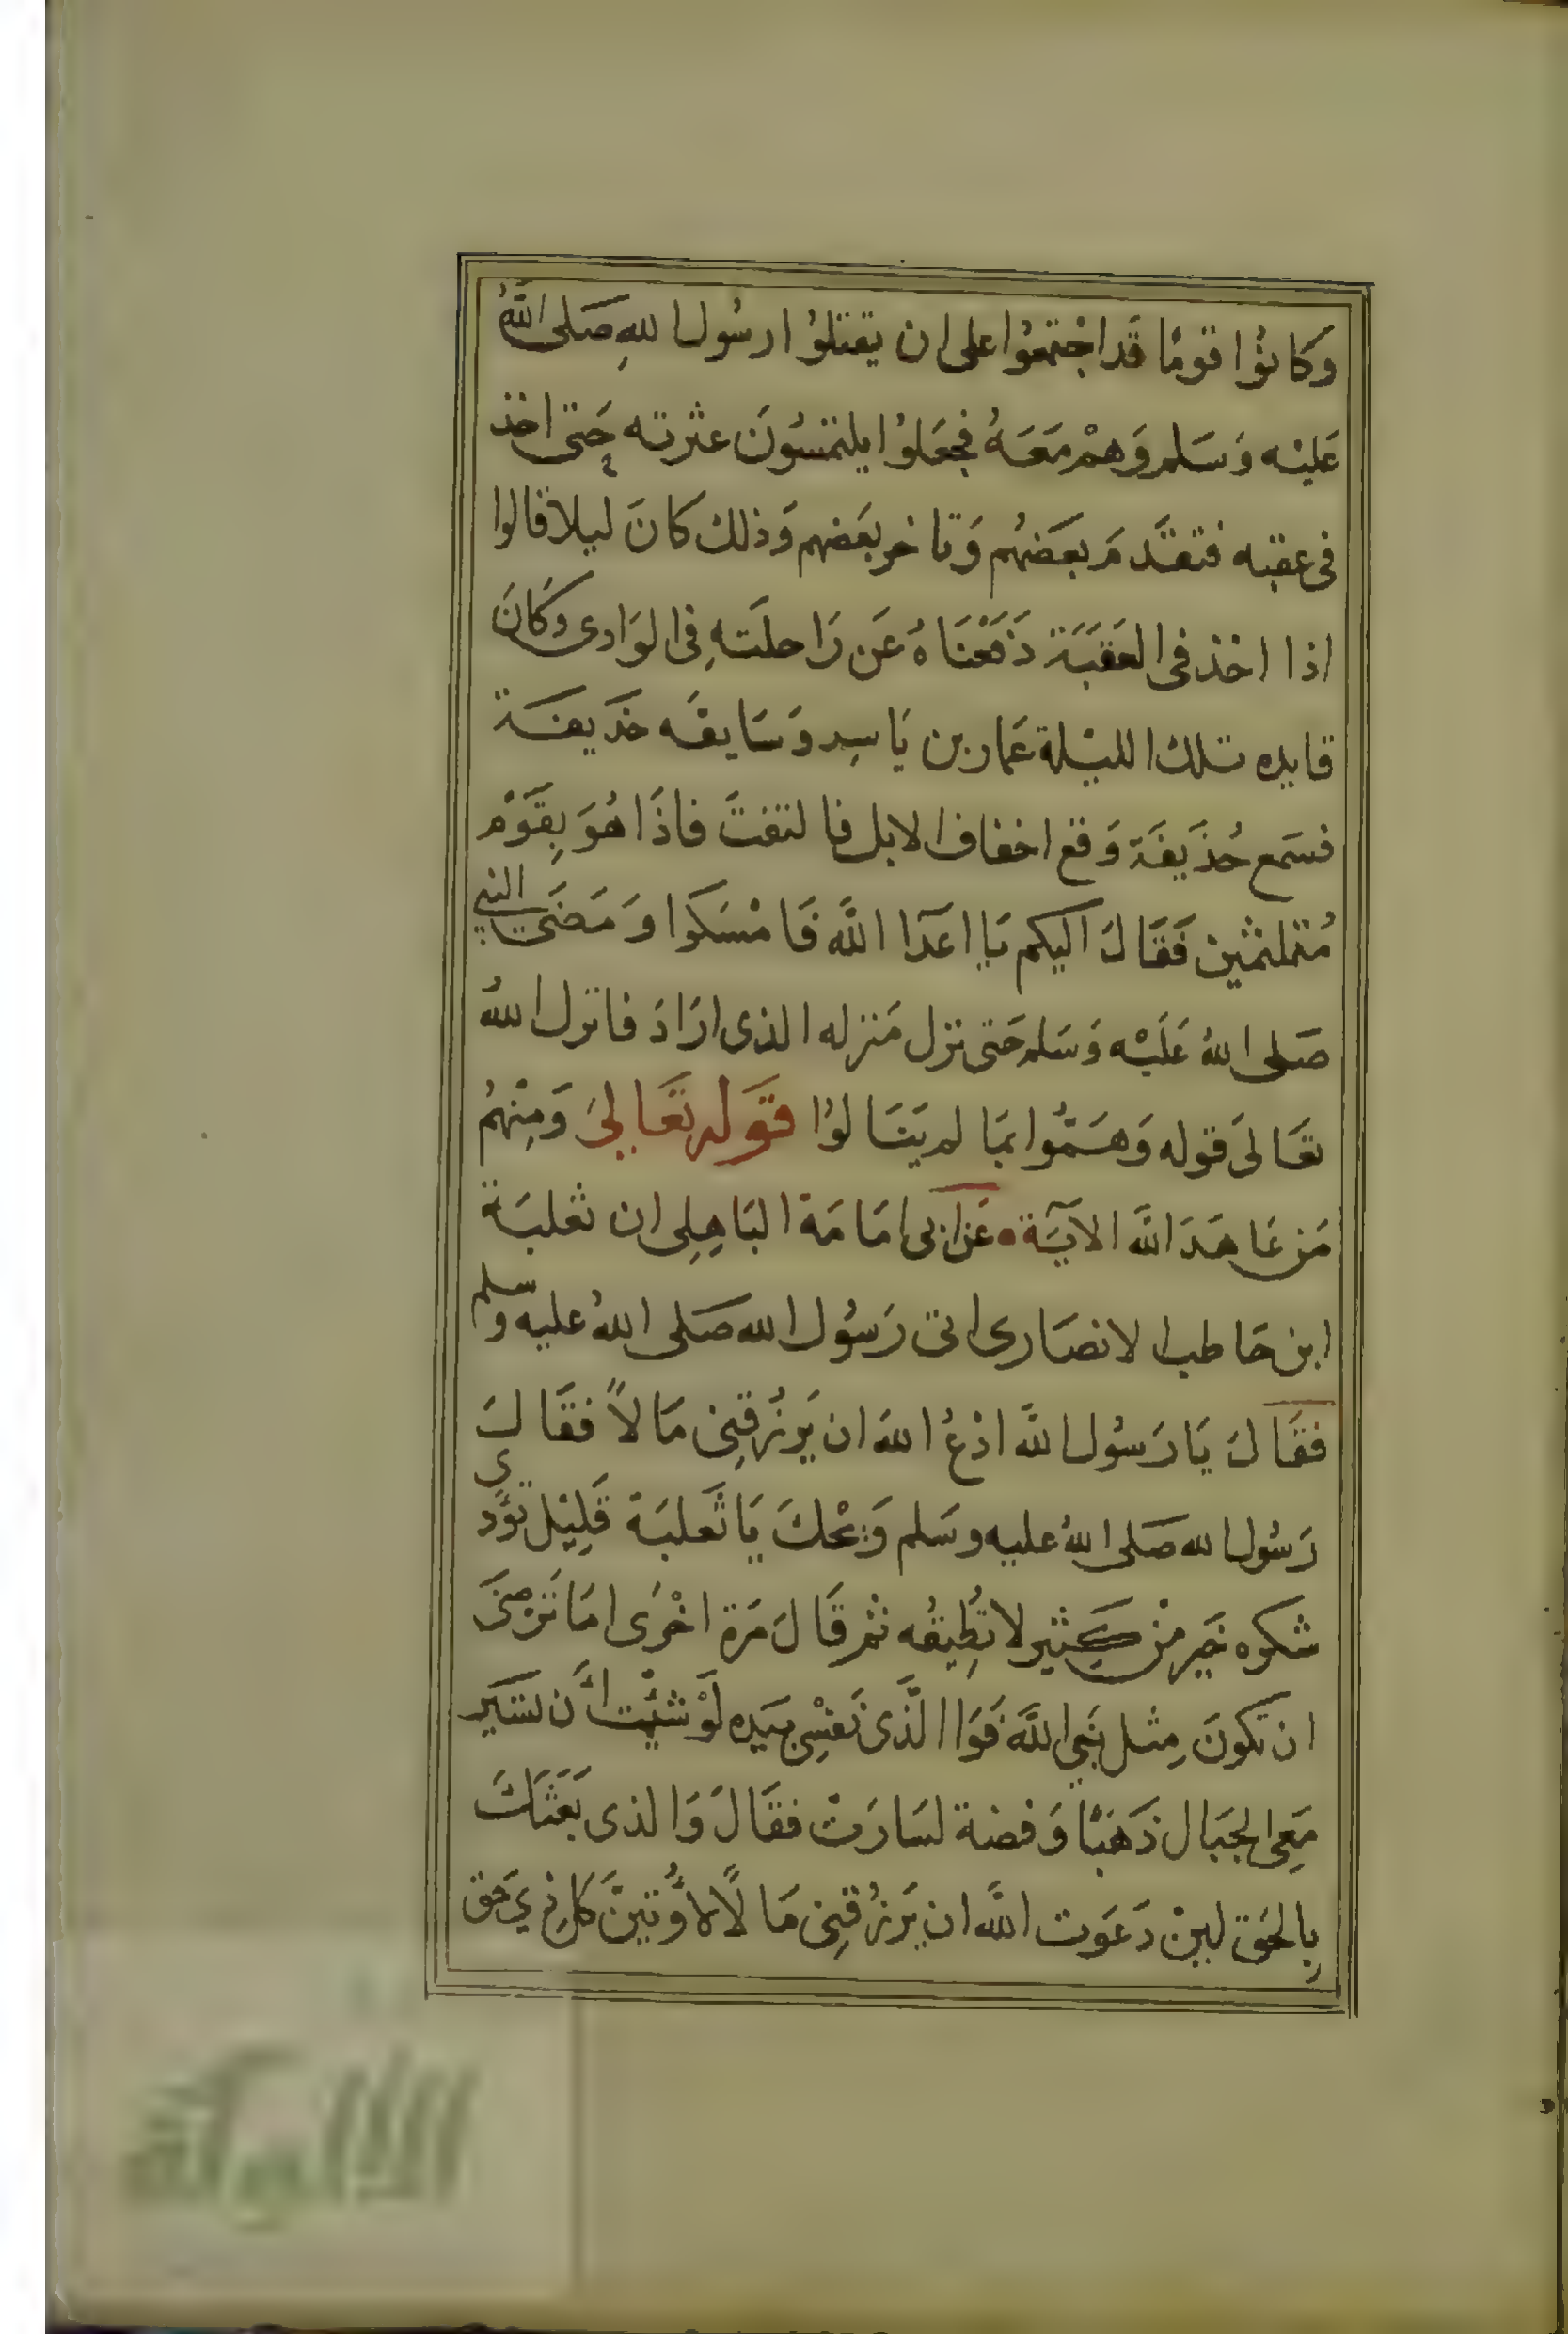 وكانُوا قومًا قَد اجْتمعُوا على ان يقتلوُا رسُول اللهِ صَلى اللهُ
عَليْه وَسَلم وَهمْ مَعَهُ فجعَلوُا يلتمسُونَ عثرته حَتى اخذ
فى عقبه فتقدَّمَ بعضهُم وَتاخر بعَضهم وَذلك كانَ ليلا قالوا
اذا اخذ فى العَقبَة دَفَعْنَاهُ عَن رَاحلَتهِ فِى الوَادى وَكَانَ
قايده تلك الليْلة عَمار بن يَاسِر وَسَايقَه حذَيفة
فسَمع حُذَيفَة وَقع اخفاف الابل فالتفتَ فاذَا هُوَ بِقَوْم
مُتملثمين فَقَالَ اليكم يَا اعَدا اللَّه فَامْسَكوا وَمَضَى النبي
صَلى اللهُ عَلَيْه وَسَلم حَتى نزل مَنزله الذى ارَادَ فانزل اللهُ
تعَالىَ قوله وَهمُّوا بمَا لم يَنَالوُا قَولهُ تعَالىَ وَمِنْهُم
مَن عَاهَدَ اللَّه الآيَة عَن ابى امَامَة البَاهِلِى ان ثعْلبَة
ابن حَاطب الانصَارى اتى رَسُول الله صَلى اللهُ عليه وسلم
فقَالَ يَا رَسُول اللَّه ادْعُ اللهَ ان يَرزُقنِى مَالاً فقَالَ
رَسُول الله صَلى اللهُ عليه وسَلم وَيْحكَ يَا ثَعلبَة قَلِيْل تؤَدي
شكره خَير مِنْ كَثِير لا تُطِيقُه ثم قَالَ مَرَة اخْرَى امَا تَرْضَى
ان تكونَ مِثل نَبِي اللَّه فَوَا الَّذى نَفسِى بيَده لَوْ شئِْت اَن تسَير
مَعِى الجبَال ذَهَبًا وَفضة لسَارَتْ فقَالَ وَالذى بَعَثَكَ
بِالحَق لينْ دَعَوت اللَّه ان يَرزُقنِى مَالاً لأُوتينَّ كل ذِي حَق
الألوكة